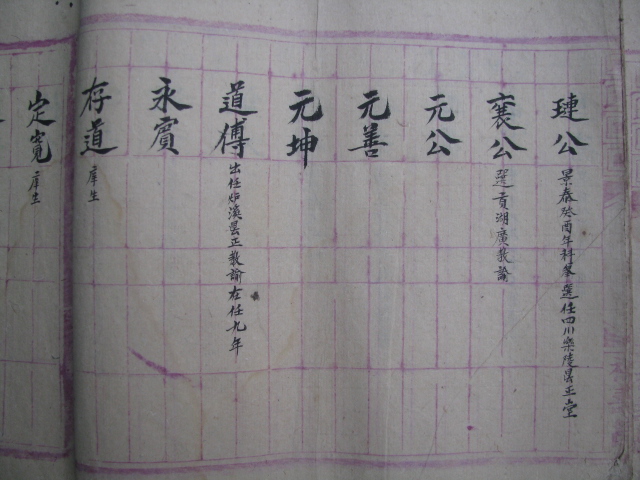 璉公 景泰癸酉年科举選任四川樂陵县正堂
襄公 選貢湖廣教諭
元公
元善
元坤
道傅 出任炉溪县正教諭在任九年
永賓
存道 庠生
定寛 庠生